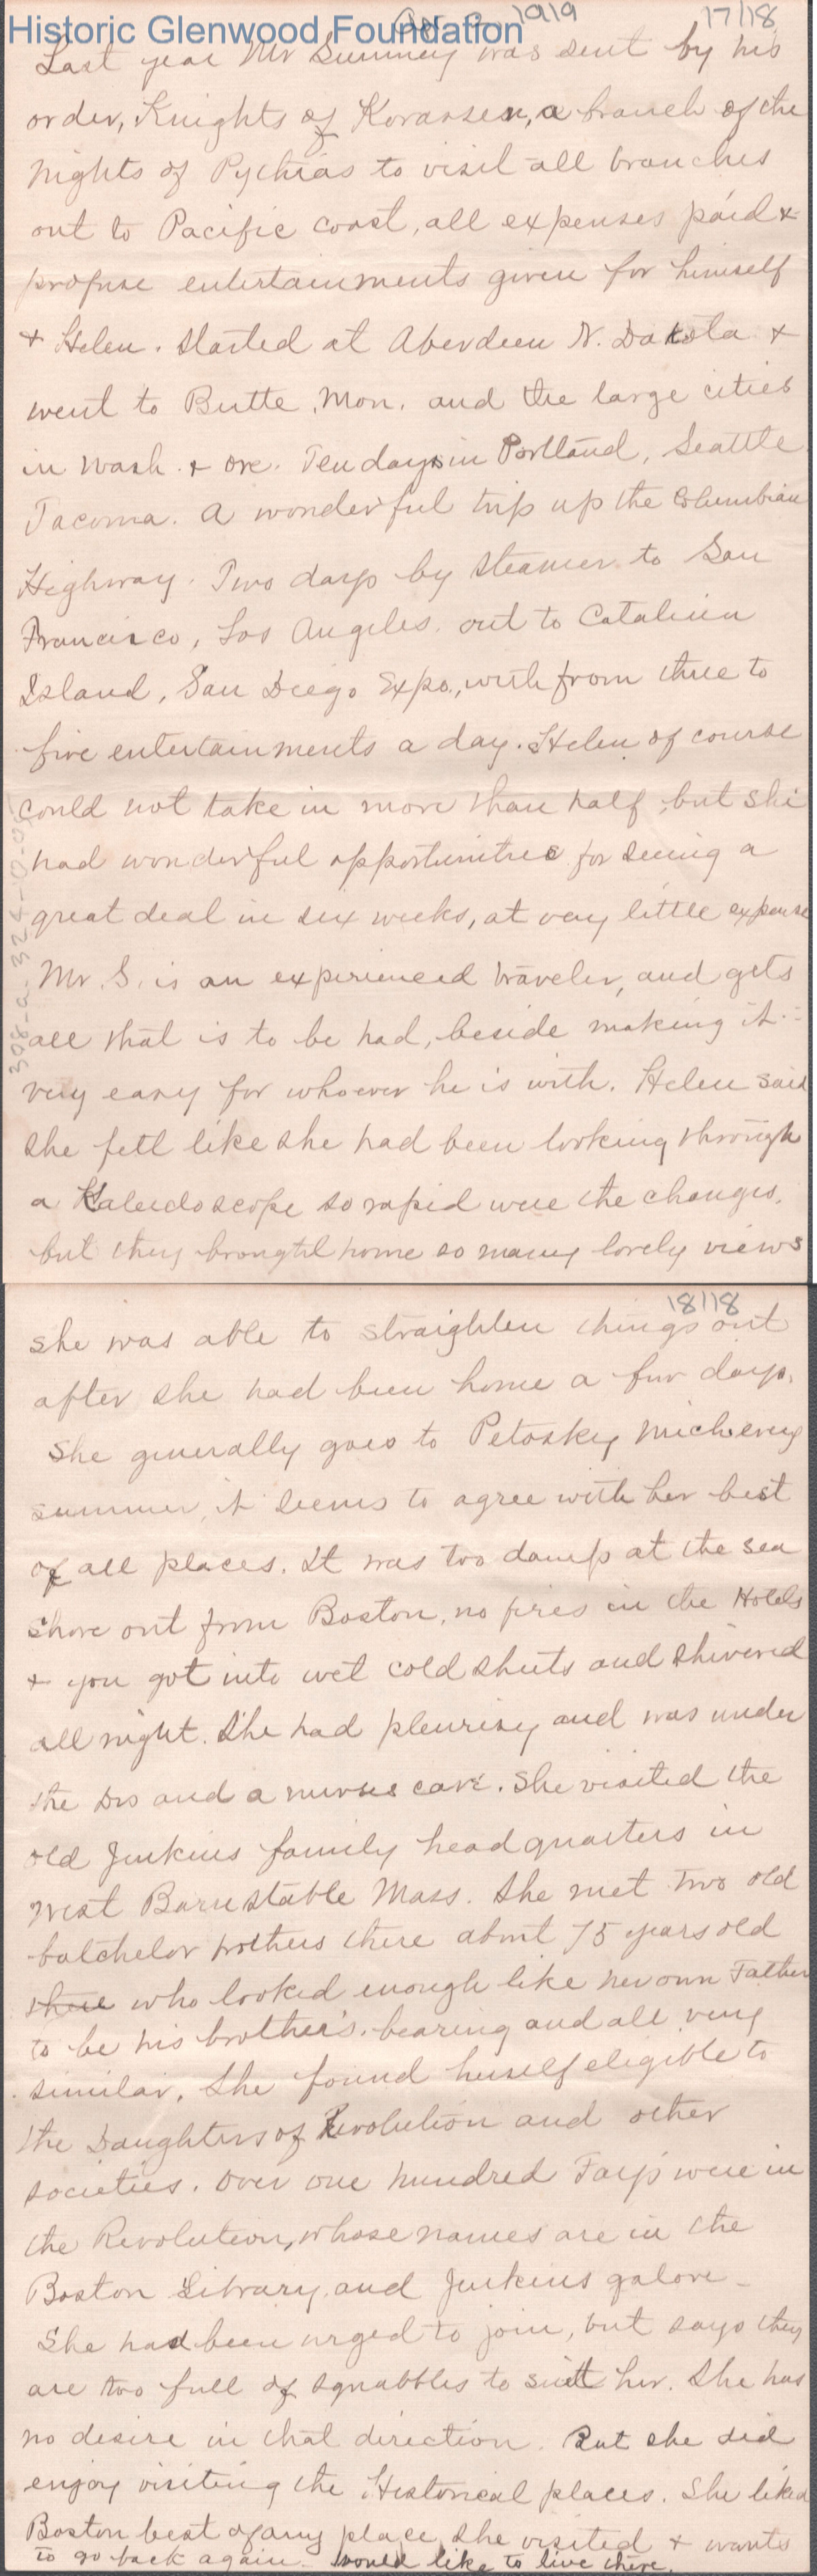 Historic Glenwood Foundation
1919 17/18
Last year Mr Summey was sent by his
order, Knights of Korassen, a branch of the
Nights of Pythias to visit all branches
out to Pacific coast, all expenses paid &
profuse entertainments given for himself
& Helen. Started at Aberdeen N. Dakota &
went to Butte, Mon. and the large cities
in Wash. & Ore. Ten days in Portland, Seattle
Tacoma. A wonderful trip up the Columbian
Highway. Two days by steamer to San
Francisco, Los Angeles. out to Catalina
Island, San Diego Expo., with from three to
five entertainments a day. Helen of course
could not take in more than half, but she
had wonderful opportunities for seeing a
great deal in six weeks, at very little expense
Mr. S. is an experienced traveler, and gets
all that is to be had, beside making it
very easy for whoever he is with. Helen said
she felt like she had been looking through
a Kaleidoscope so rapid were the changes.
but they brought home so many lovely views
18/18
she was able to straighten things out
after she had been home a few days.
She generally goes to Petoskey Mich every
summer, it seems to agree with her best
of all places. It was too damp at the sea
shore out from Boston, no fires in the Hotels
& you got into wet cold sheets and shivered
all night. She had pleurisy and was under
the Drs and a nurses care. She visited the
old Jenkins family headquarters in
West Barnstable Mass. She met two old
batchelor brothers there about 75 years old
there who looked enough like her own Father
to be his brother's. bearing and all very
similar. She found herself eligible to
the Daughters of Revolution and other
societies. Over one hundred Fays were in
the Revolution, whose names are in the
Boston Library, and Jenkins galore -
She had been urged to join, but says they
are too full of squabbles to suit her. She has
no desire in that direction. But she did
enjoy visiting the Historical places. She liked
Boston best of any place she visited & wants
to go back again. Would like to live there.
308-a-324-10-0